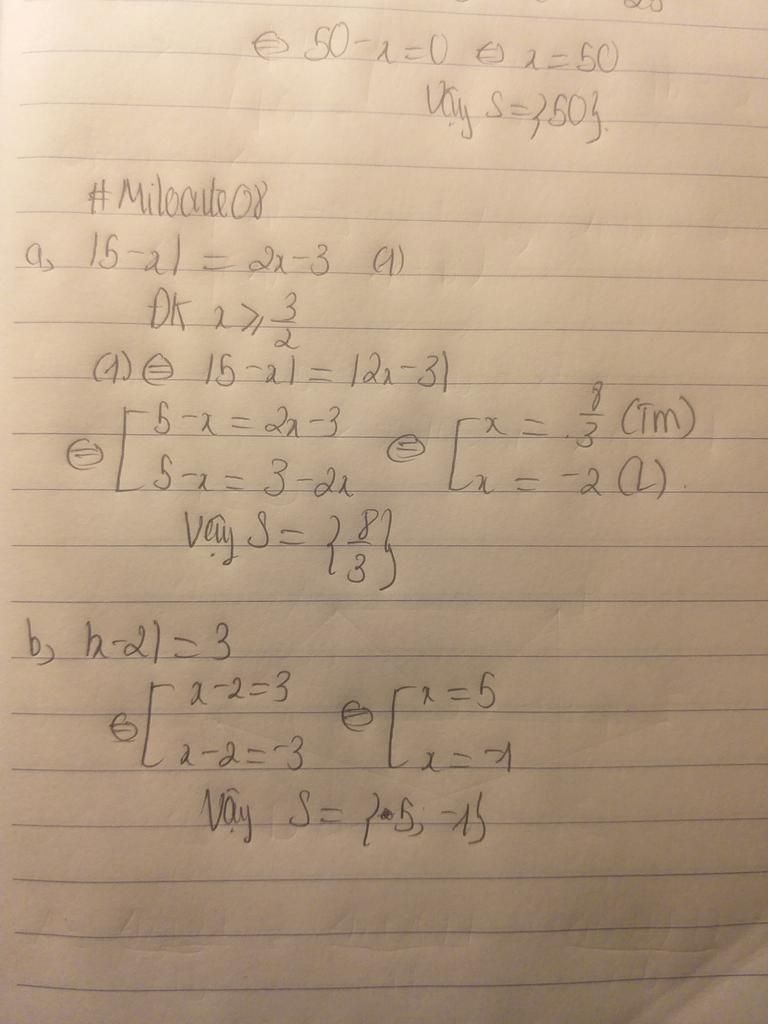 ⇔ 50-x=0 ⇔ x=50
Vậy S={50}.
#Milocute08
a, |5-x| = 2x-3 (1)
ĐK x ⩾ 3/2
(1) ⇔ |5-x| = |2x-3|
⇔ [ 5-x = 2x-3 ⇔ [ x = 8/3 (Tm)
5-x = 3-2x x = -2 (L).
Vậy S = {8/3}
b, |x-2| = 3
⇔ [ x-2=3 ⇔ [ x=5
x-2=-3 x=-1
Vậy S = {5; -1}